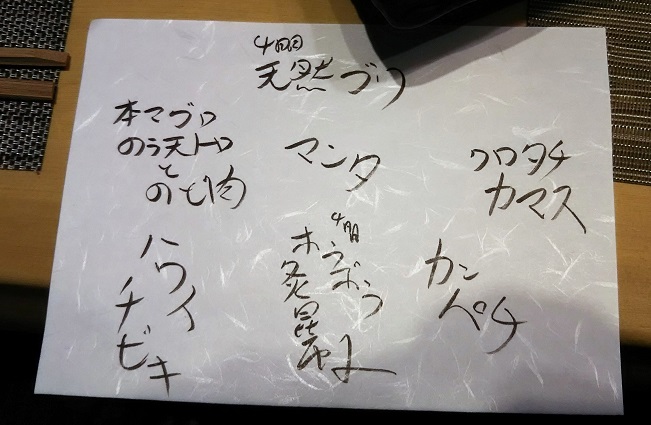 4日目
天然ブリ
本マグロ
のう天トロ
と
のど肉
マンタ
クロタチ
カマス
ハワイ
チビキ
4日目
ホウボウ
炙
昆布〆
カン
パチ